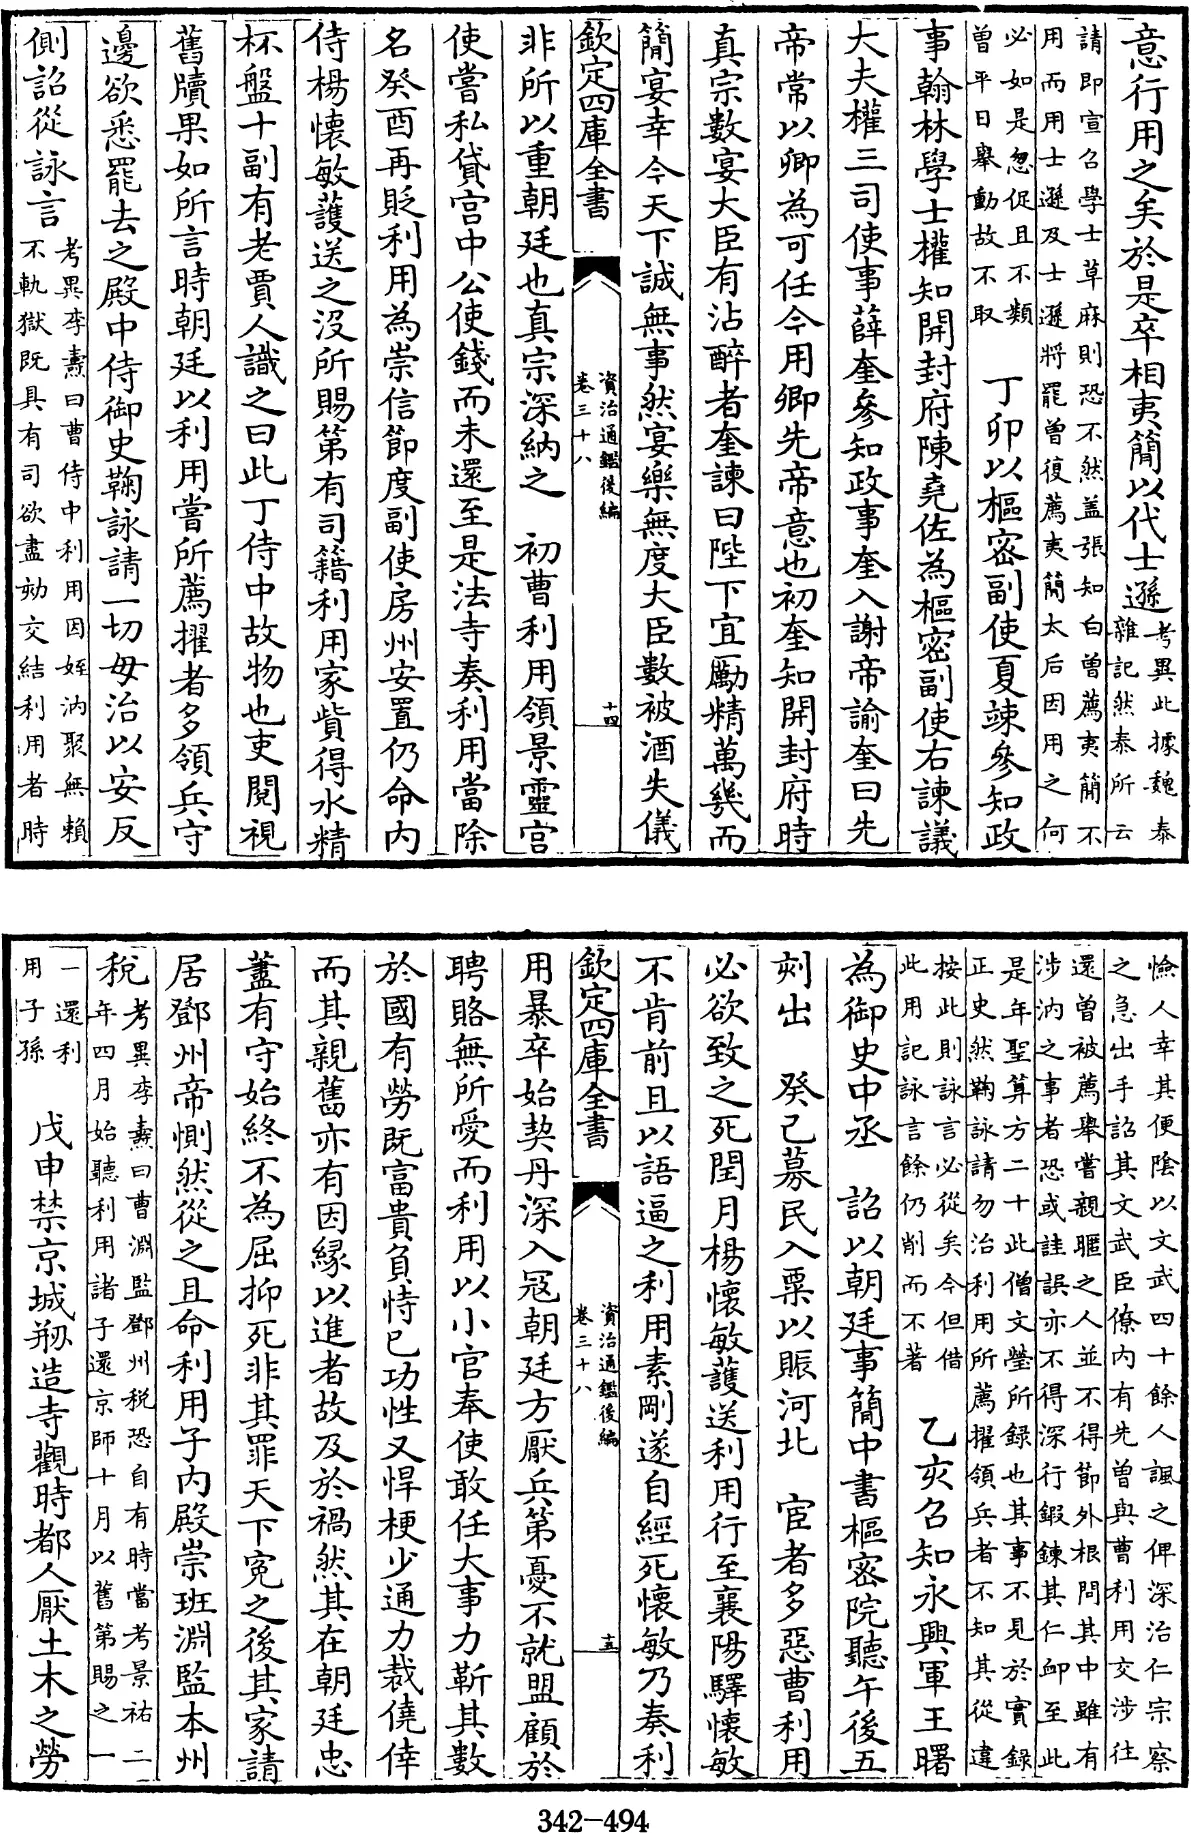 意行用之矣於是卒相夷簡以代士遜考異此據魏泰
雜記然泰所云
請即宣召學士草麻則恐不然蓋張知白曾薦夷簡不
用而用士遜及士遜將罷曾復薦夷簡太后因用之何
必如是怱促且不類
曾平日舉動故不取　丁卯以樞密副使夏竦參知政
事翰林學士權知開封府陳堯佐為樞密副使右諫議
大夫權三司使事薛奎參知政事奎入謝帝諭奎曰先
帝常以卿為可任今用卿先帝意也初奎知開封府時
真宗數宴大臣有沾醉者奎諫曰陛下宜勵精萬幾而
簡宴幸今天下誠無事然宴樂無度大臣數被酒失儀
欽定四庫全書
資治通鑑後編
卷三十八
十四
非所以重朝廷也真宗深納之　初曹利用領景靈宮
使嘗私貸宮中公使錢而未還至是法寺奏利用當除
名癸酉再貶利用為崇信節度副使房州安置仍命內
侍楊懷敏護送之沒所賜第有司籍利用家貲得水精
杯盤十副有老賈人識之曰此丁侍中故物也吏閱視
舊牘果如所言時朝廷以利用嘗所薦擢者多領兵守
邊欲悉罷去之殿中侍御史鞠詠請一切毋治以安反
側詔從詠言考異李燾曰曹侍中利用因姪汭聚無賴
不軌獄既具有司欲盡劾交結利用者時
憸人幸其便陰以文武四十餘人諷之俾深治仁宗察
之急出手詔其文武臣僚內有先曾與曹利用交涉往
還曾被薦舉嘗親暱之人並不得節外根問其中雖有
涉汭之事者恐或詿誤亦不得深行鍛鍊其仁卹至此
是年聖算方二十此僧文瑩所録也其事不見於實録
正史然鞠詠請勿治利用所薦擢領兵者不知其從違
按此則詠言必從矣今但借
此用記詠言餘仍削而不著　乙亥召知永興軍王曙
為御史中丞　詔以朝廷事簡中書樞密院聽午後五
刻出　癸己募民入粟以賑河北　宦者多惡曹利用
必欲致之死閏月楊懷敏護送利用行至襄陽驛懷敏
不肯前且以語逼之利用素剛遂自經死懷敏乃奏利
欽定四庫全書
資治通鑑後編
卷三十八
十五
用暴卒始契丹深入冦朝廷方厭兵第憂不就盟顧於
聘賂無所愛而利用以小官奉使敢任大事力靳其數
於國有勞既富貴負恃已功性又悍梗少通力裁僥倖
而其親舊亦有因緣以進者故及於禍然其在朝廷忠
藎有守始終不為屈抑死非其罪天下寃之後其家請
居鄧州帝惻然從之且命利用子內殿崇班淵監本州
稅考異李燾曰曹淵監鄧州稅恐自有時當考景祐二
年四月始聽利用諸子還京師十月以舊第賜之一
一還利
用子孫　戊申禁京城剏造寺觀時都人厭土木之勞
342-494